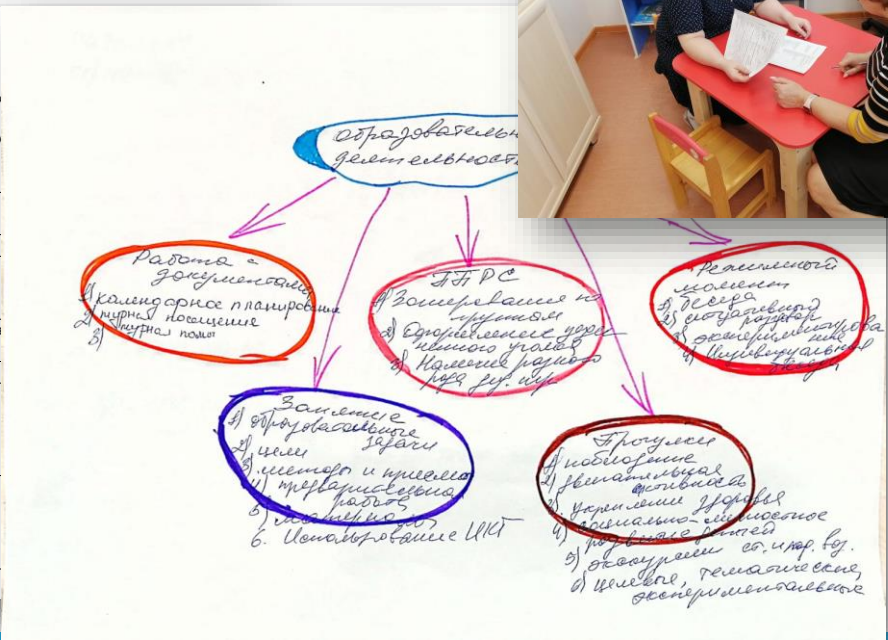 образователь
деятельность
Работа с
документами
1) календарное планирование
2) посещение
3)
ППРС
1) Зонирование по
группам
2) Оформление
уголов
3) Наличие разного
рода
Режимный
момент
1) беседа
2) ситуативный
разговор
3) экспериментирова
ние
4) Индивидуальный
Занятие
1) образовательные
задачи
2) цели
3. методы и приёмы
4) предварительна
работа
5) материалы
6. Использование ИКТ
Прогулки
1) наблюдение
2) двигательная
активность
3. укрепление здоровья
4) социально-личностное
развитие детей
5) экскурсии ст. и под. воз.
6) целевые, тематические,
экспериментальные